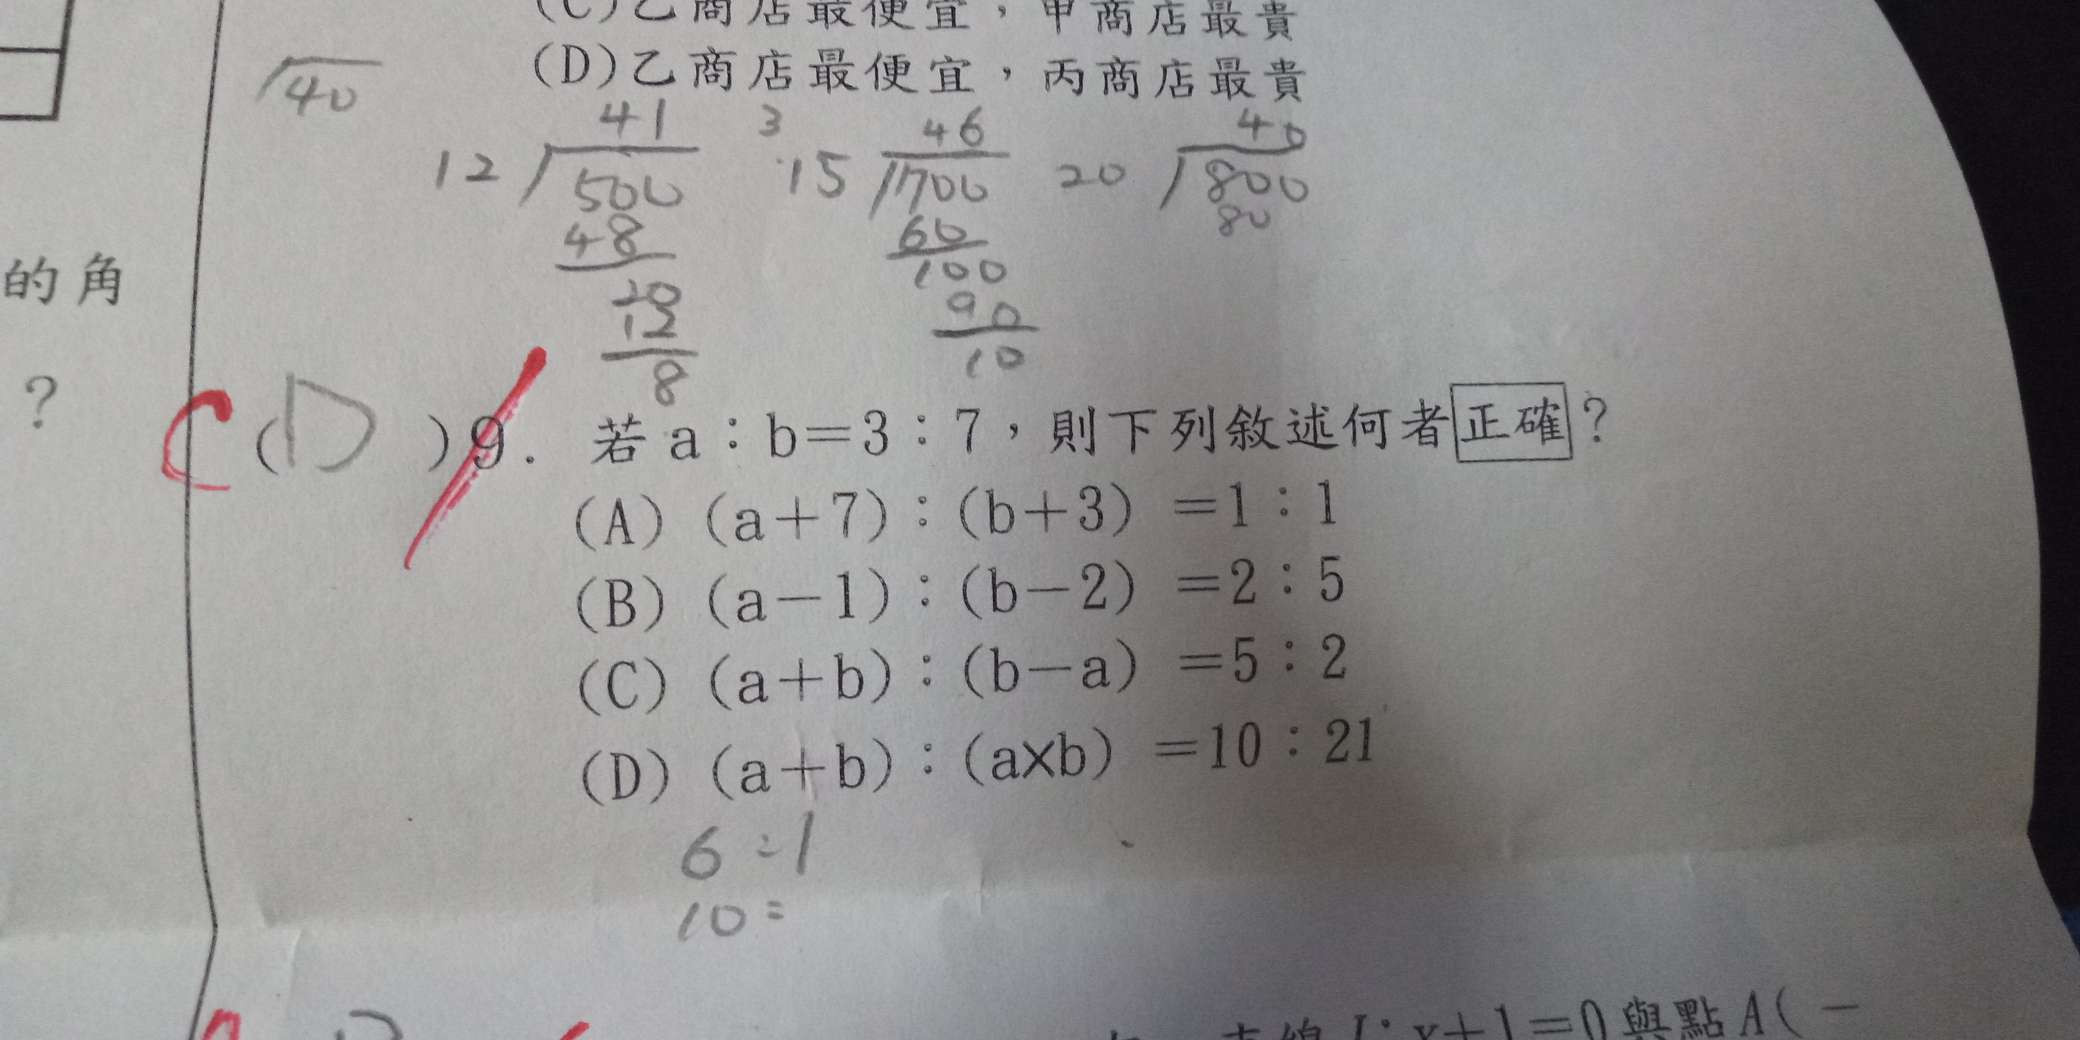 (C)乙商店最便宜，甲商店最貴
(D)乙商店最便宜，丙商店最貴
40
41 3 46 40
12 500 15 700 20 800
48 60 80
20 100
12 90
8 10
的角
?
C (D)9. 若a：b＝3：7，則下列敘述何者正確？
(A) (a＋7)：(b＋3) ＝1：1
(B) (a－1)：(b－2) ＝2：5
(C) (a＋b)：(b－a) ＝5：2
(D) (a＋b)：(a×b) ＝10：21
6:1
10=
x＋1＝0與點A(－